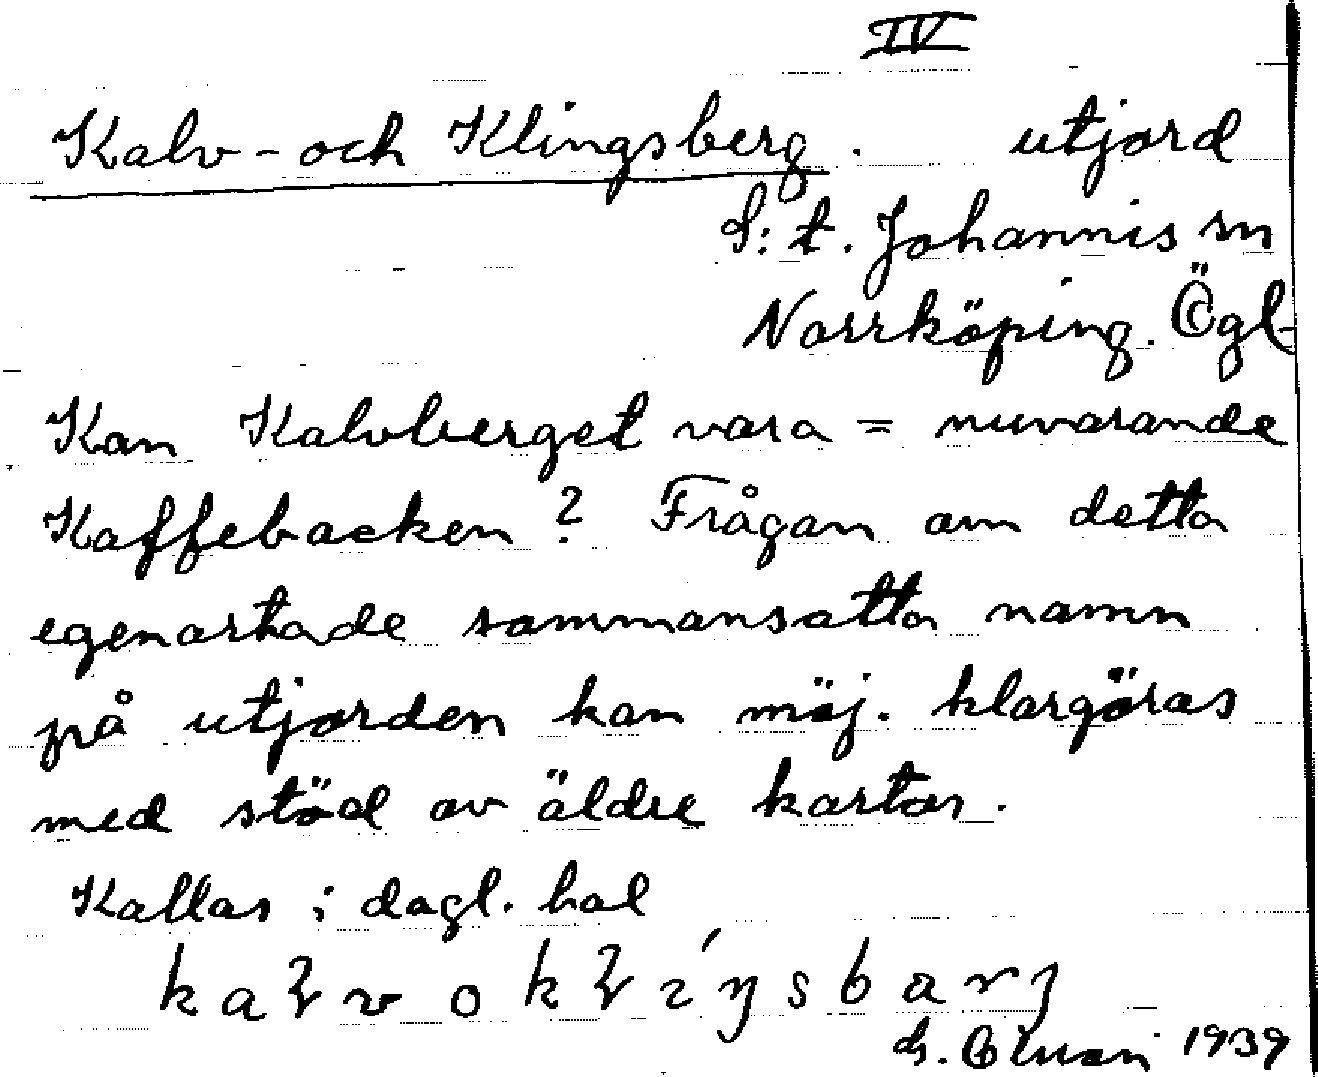 IV
Kalv- och Klingsberg. utjord
S:t. Johannis sn
Norrköping. Ögl
Kan Kalvberget vara = nuvarande
Kaffebacken? Frågan om detta
egenartade sammansatta namn
på utjorden kan möj. klargöras
med stöd av äldre kartor.
Kallas i dagl. hal
1939